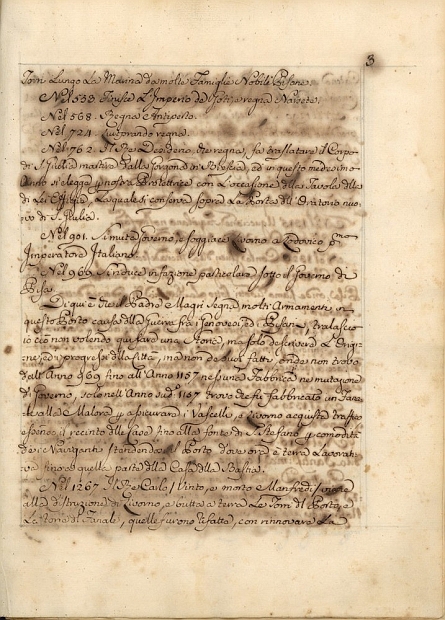 3
Torri Lungo La Marina da molte Famiglie Nobili Pisane.
Nel 533 finisce L'Imperio de Goti, e regna Narsete.
Nel 568. Regna
Nel 724. Luitprando regna.
Nel 762. Il Re Desiderio, che regna, fa traslatare il Corpo
di S. Giulia martire dalla Gorgona in Brescia, ed in questo medesimo
Anno si elegge nostra Protettrice con L'occasione della Tavola della
di Lei Effigie, La quale si conserva sopra La Porta dell'Oratorio nuo
vo di S. Giulia.
Nel 901. Si muta Governo, e soggiace Livorno a Lodovico pmo
Imperatore Italiano.
Nel 966 Si riduce in fazione particolare sotto il Governo di
Pisa.
Di qui è che il Padre Magri segna molti Armamenti in
questo Porto causa della Guerra fra Genovesi, ed Pisani, tralascio
io ciò non volendo qui fare una Storia, ma solo descrivere L'Origi
ne, ed i progressi della Città, ma non de suoi fatti onde non trovo
dall'Anno 969 fino all'Anno 1157 nessuna Fabbrica ne mutazione
di Governo, solo nell'Anno sudo 1157 trovo che fu fabbricato un Fana
le nella Maloria assicurare i Vascelli, e Livorno acquista traffico
essendo il recinto delle Case fino alla fonte di S. Stefano comodità
dei Naviganti stendendosi il Porto dove ora è terra Lavorati
va fino a quella parte della Casa della Bastia.
Nel 1267 Il Re Carlo vinto, e morto Manfredi
alla distruzione di Livorno, e butta a terra Le Torri del Porto, e
La Torre del Fanale, quelle furono rifatte, con rinnovare La